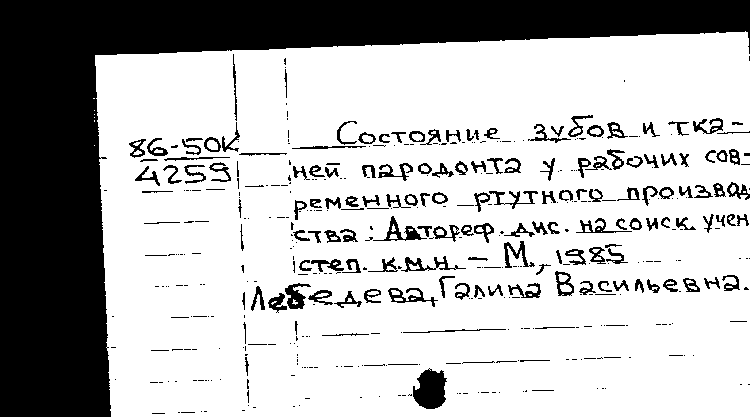 86-50К
4259
Состояние зубов и тка-
ней пародонта у рабочих сов-
ременного ртутного производ
ства : Автореф. дис. на соиск. учен
степ. к.м.н. – М., 1985
Лебедева, Галина Васильевна.